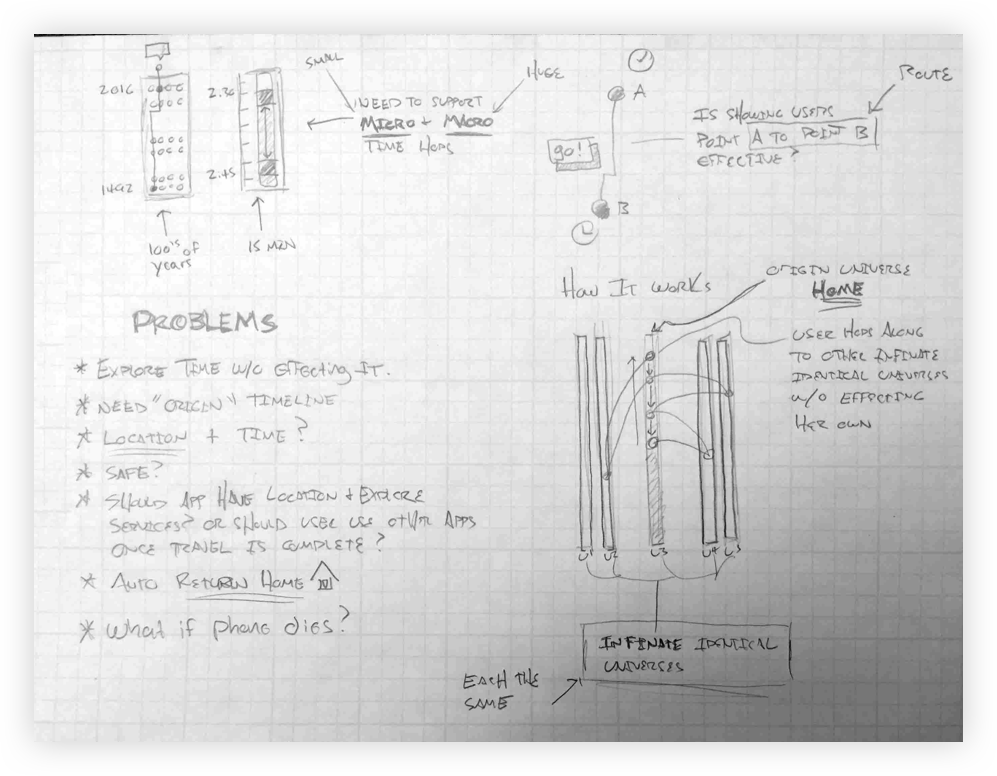 2016
1492
100's of
years
2:30
2:45
15 MIN
SMALL
HUGE
NEED TO SUPPORT
MICRO + MACRO
TIME HOPS
A
go!
B
ROUTE
IS SHOWING USERS
POINT A TO POINT B
EFFECTIVE?
PROBLEMS
* EXPLORE TIME W/O EFFECTING IT.
* NEED "ORIGIN" TIMELINE
* LOCATION + TIME?
* SAFE?
* SHOULD APP HAVE LOCATION + EXPLORE
SERVICES? OR SHOULD USER USE OTHER APPS
ONCE TRAVEL IS COMPLETE?
* AUTO RETURN HOME
* What if phone dies?
HOW IT WORKS
ORIGIN UNIVERSE
HOME
USER HOPS ALONG
TO OTHER INFINATE
IDENTICAL UNIVERSES
W/O EFFECTING
HER OWN
U1 U2 U3 U4 U5
INFINATE IDENTICAL
UNIVERSES
EACH THE
SAME